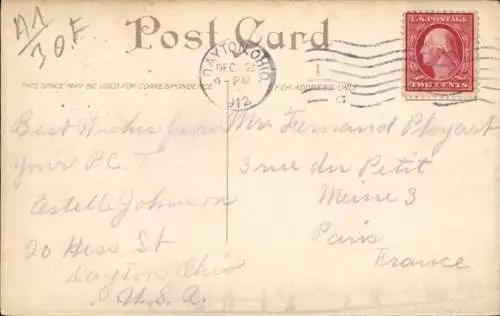 A1
30F
Post Card
THIS SPACE MAY BE USED FOR CORRESPONDENCE
FOR ADDRESS ONLY
DAYTON, OHIO.
DEC 2
PM
1912
1
C
U.S. POSTAGE
TWO CENTS
Best Wishes from
your P.C.
Estelle Johnson
20 Hess St
Dayton, Ohio
U.S.A.
Mr. Fernand Ployart
3 rue du Petit
3
Paris
France